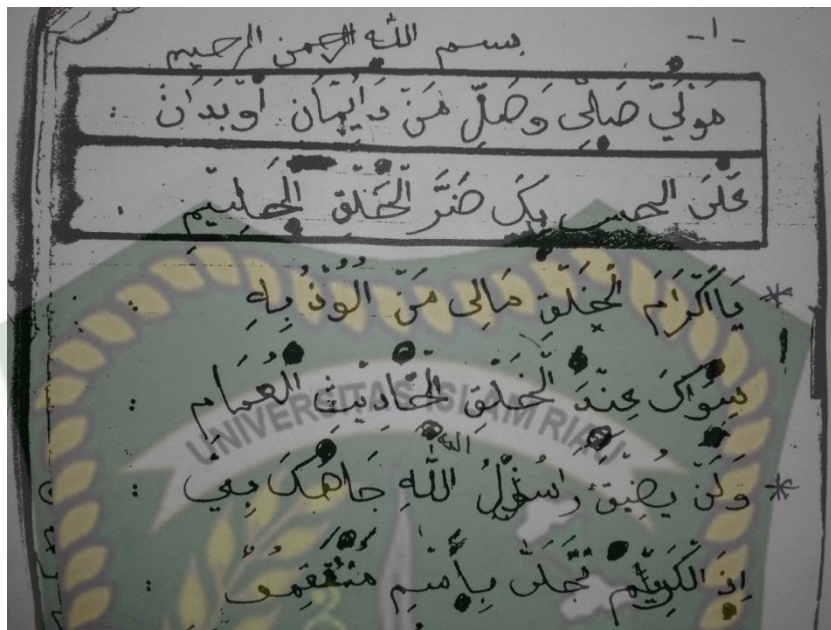 -١-
بسم الله الرحمن الرحيم
مَوْلَيَّ صَالِّى وَصَلِّ مَنْ دَايِمَان اَوْبَدَانْ :
عَلَى الحسب بِكَ ضَرَّ الْخَلْقِ الْجَلِيِيْمِ .
* يَااَكْرَامَ الْخَلْقِ مَالِى مَنْ اَلُوْذُ بِهِ :
سِوَاكَ عِنْدَ الْخَلْقِ الْحَادِيْثِ الْعُمَامِ :
* وَلَنْ يَضِيْقَ رَاسُوْلُ اللّٰهِ جَاهُكَ بِيْ :
اِذَ الْكَرِيْمُ تَجَلَّى بِاَمْتِمِ مُنْتَقِمٍ :
UNIVERSITAS ISLAM RIAU